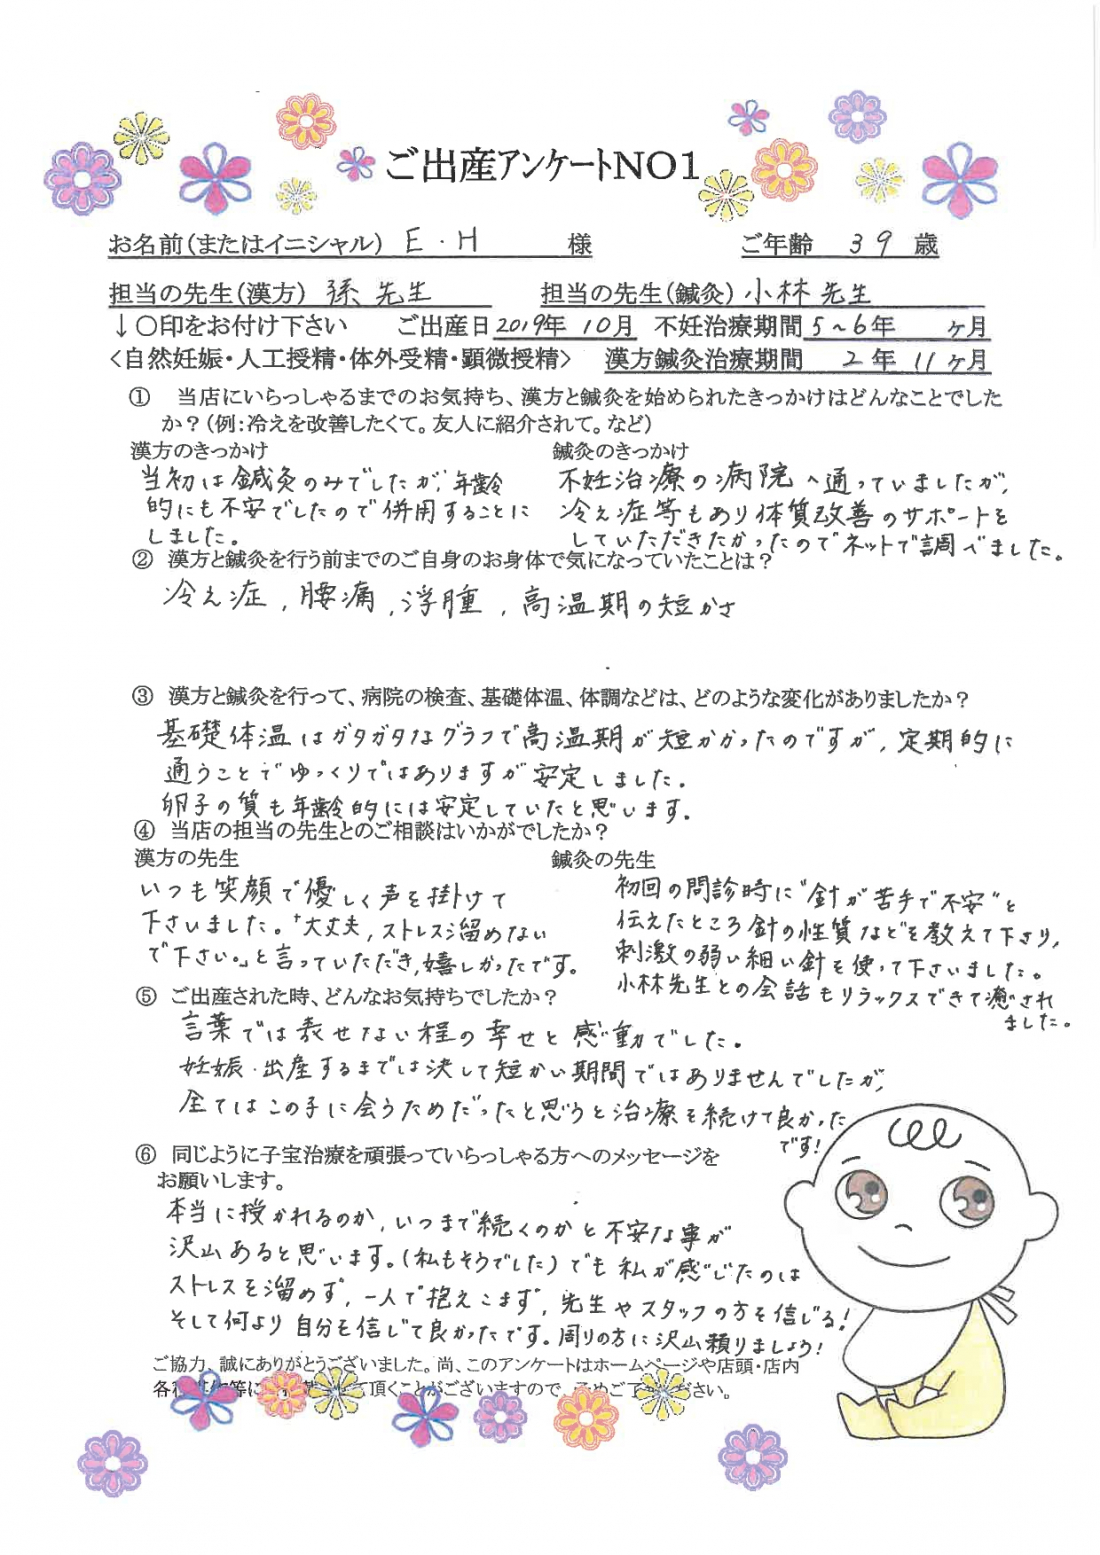 ご出産アンケートNO1
お名前(またはイニシャル) E・H 様 ご年齢 39 歳
担当の先生(漢方) 孫 先生 担当の先生(鍼灸) 小林 先生
↓○印をお付け下さい ご出産日 2019年 10月 不妊治療期間 5~6年 ヶ月
<自然妊娠・人工授精・体外受精・顕微授精> 漢方鍼灸治療期間 2年 11ヶ月
① 当店にいらっしゃるまでのお気持ち、漢方と鍼灸を始められたきっかけはどんなことでした
か?(例:冷えを改善したくて。友人に紹介されて。など)
漢方のきっかけ
当初は鍼灸のみでしたが、年齢
的にも不安でしたので併用することに
しました。
鍼灸のきっかけ
不妊治療の病院へ通っていましたが、
冷え症等もあり体質改善のサポートを
していただきたかったのでネットで調べました。
② 漢方と鍼灸を行う前までのご自身のお身体で気になっていたことは?
冷え症, 腰痛, 浮腫, 高温期の短かさ
③ 漢方と鍼灸を行って、病院の検査、基礎体温、体調などは、どのような変化がありましたか?
基礎体温はガタガタなグラフで高温期が短かかったのですが, 定期的に
通うことでゆっくりではありますが安定しました.
卵子の質も年齢的には安定していたと思います.
④ 当店の担当の先生とのご相談はいかがでしたか?
漢方の先生
いつも笑顔で優しく声を掛けて
下さいました。「大丈夫, ストレス溜めない
で下さい。」と言っていただき, 嬉しかったです。
鍼灸の先生
初回の問診時に"針が苦手で不安"と
伝えたところ針の性質などを教えて下さり,
刺激の弱い細い針を使って下さいました。
小林先生との会話もリラックスできて癒され
ました。
⑤ ご出産された時、どんなお気持ちでしたか?
言葉では表せない程の幸せと感動でした。
妊娠・出産するまでは決して短かい期間ではありませんでしたが,
全てはこの子に会うためだったと思うと治療を続けて良かった
です!
⑥ 同じように子宝治療を頑張っていらっしゃる方へのメッセージを
お願いします。
本当に授かれるのか, いつまで続くのかと不安な事が
沢山あると思います。(私もそうでした)でも私が感じたのは
ストレスを溜めず, 一人で抱えこまず, 先生やスタッフの方を信じる!
そして何より自分を信じて良かったです。周りの方に沢山頼りましょう!
ご協力、誠にありがとうございました。尚、このアンケートはホームページや店頭・店内
各種 等に て頂くことがございますので、 ください。